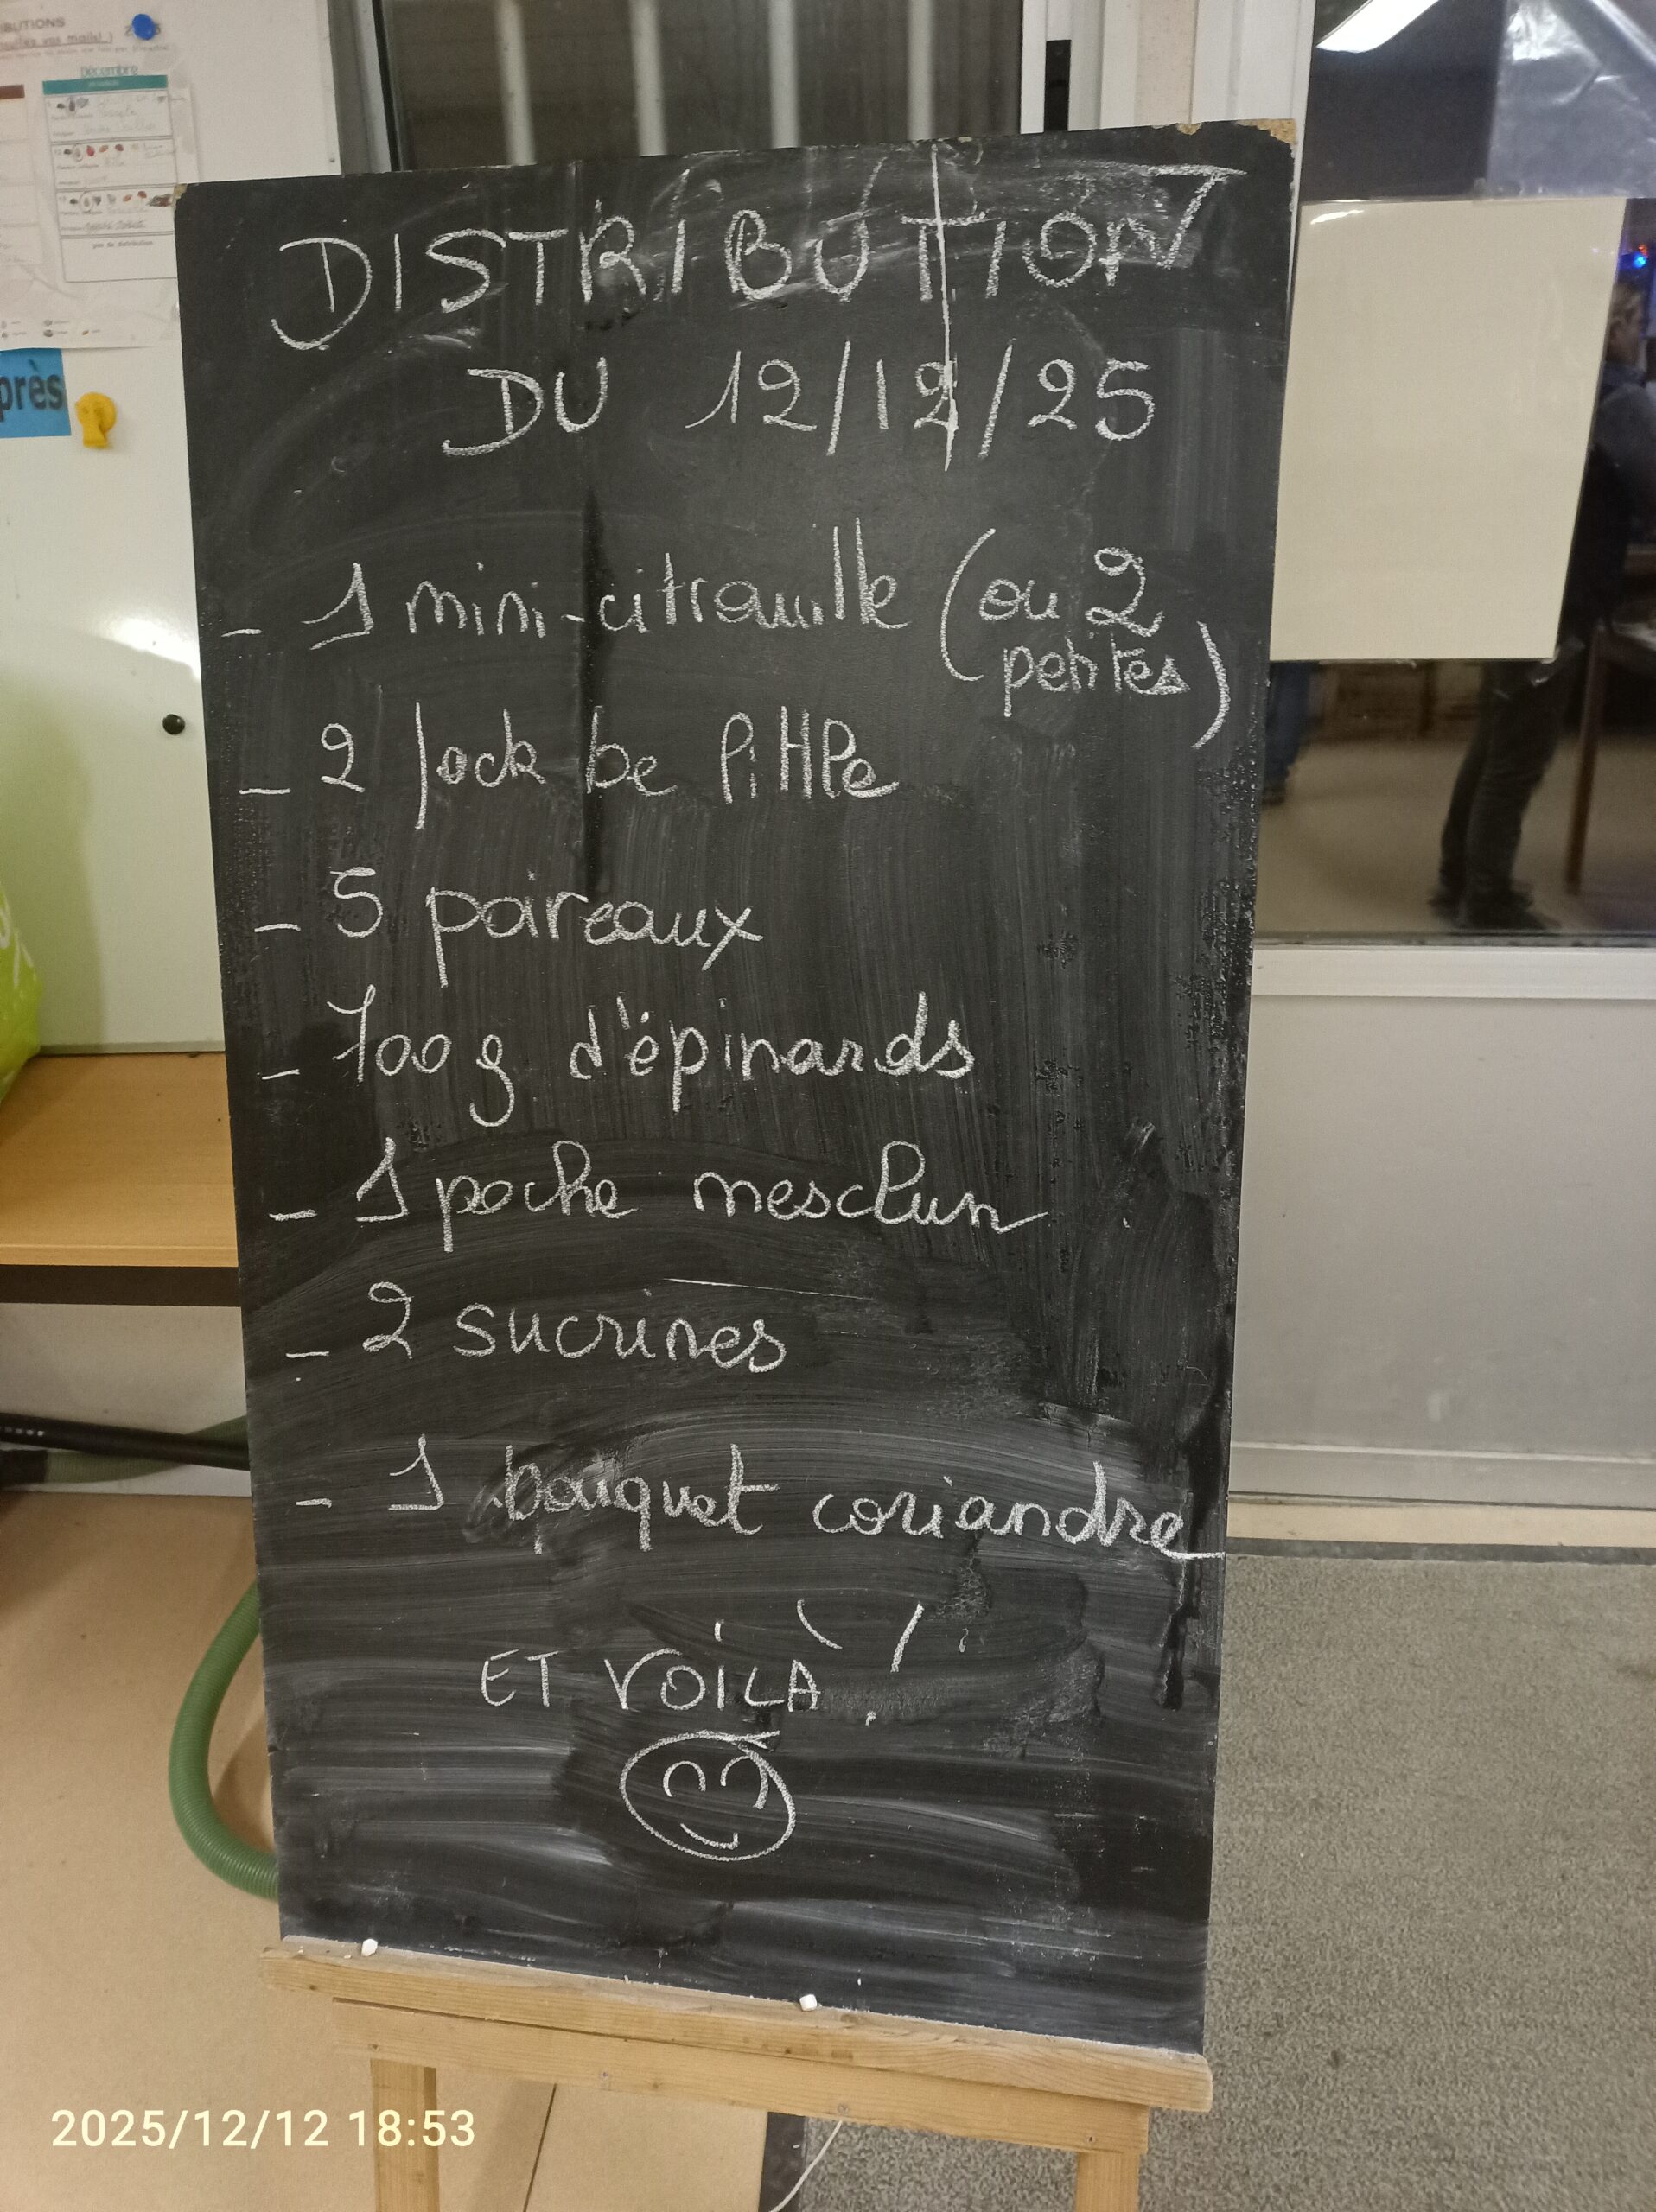 IBUTIONS
Décembre
près
pas de distribution
DISTRIBUTION
DU 12/12/25
- 1 mini-citrouille (ou 2
petites)
- 2 Jack be little
- 5 poireaux
- 700 g d'épinards
- 1 poche mesclun
- 2 sucrines
- 1 bouquet coriandre
ET VOILÀ !
2025/12/12 18:53